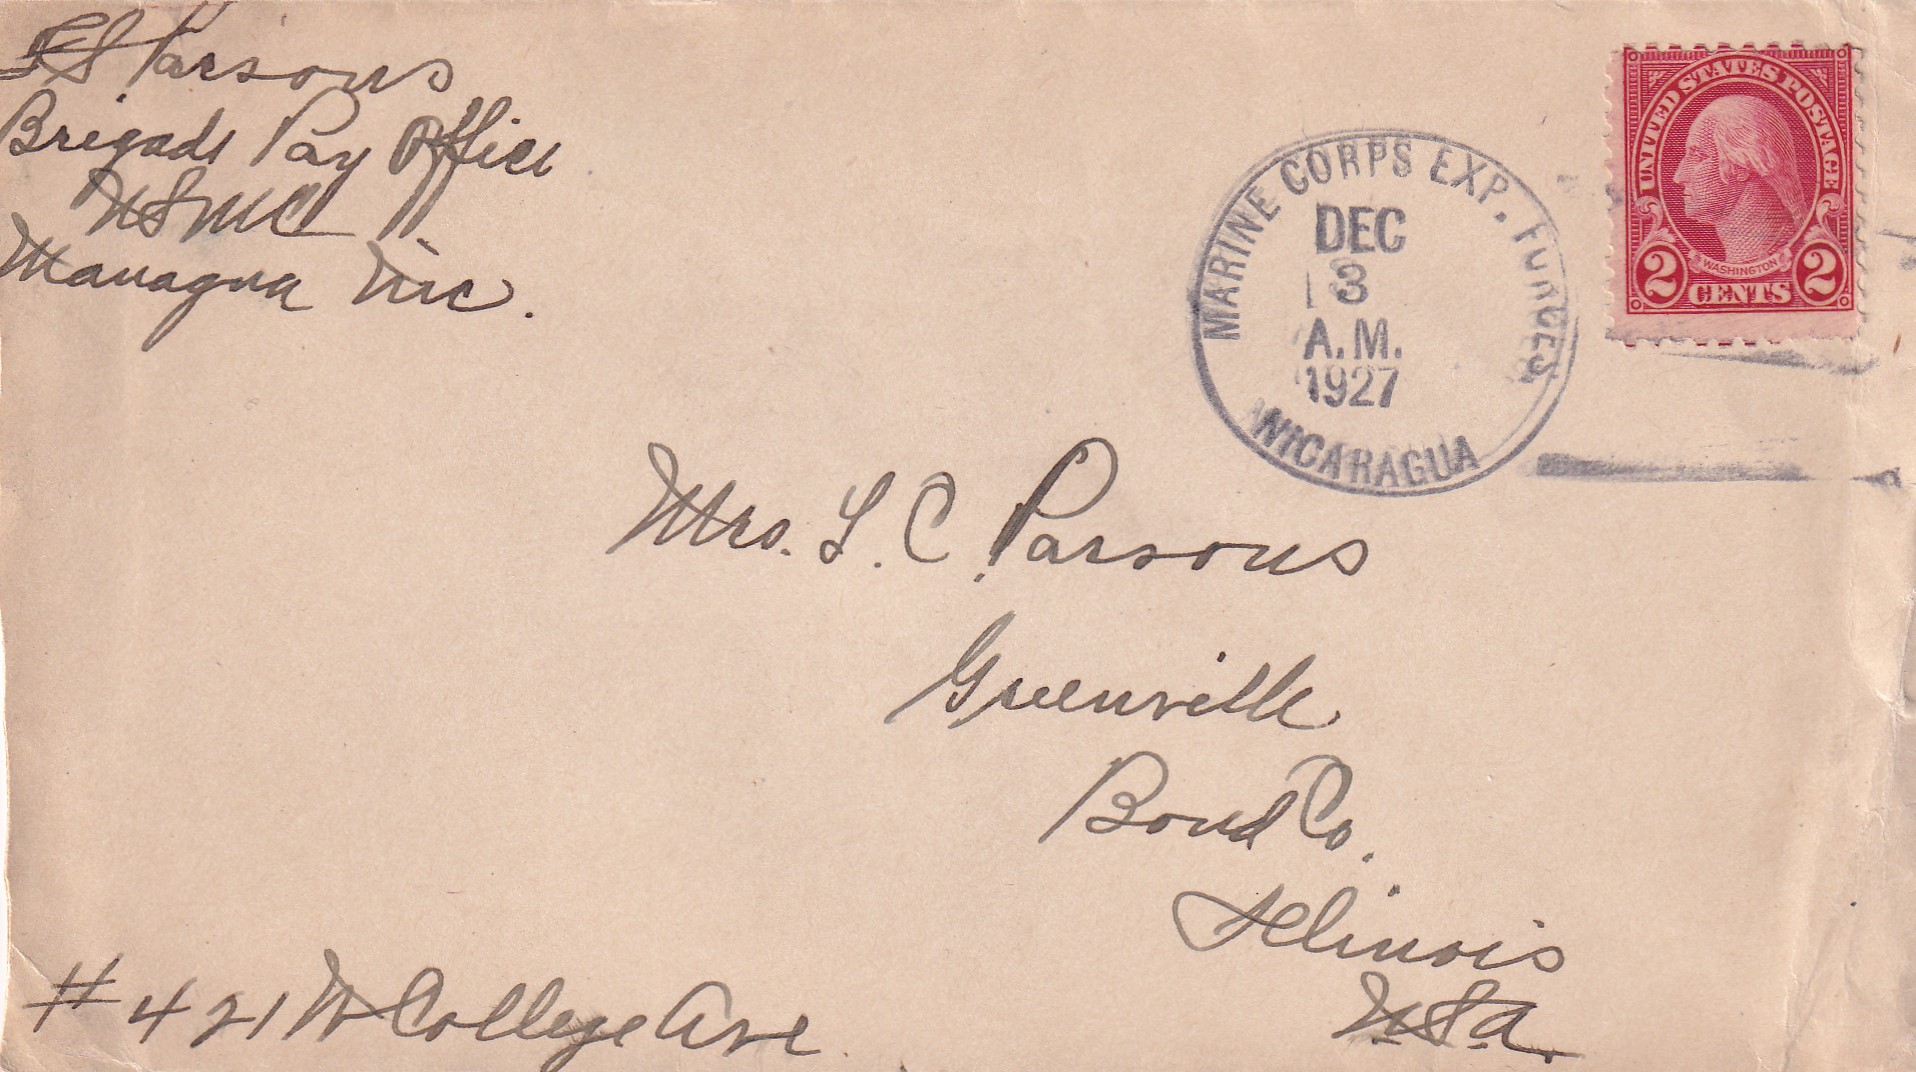 S Parsons
Brigade Pay Office
USMC
Managua Nic.
UNITED STATES POSTAGE
WASHINGTON
2 CENTS 2
MARINE CORPS EXP. FORCES
DEC
3
A.M.
1927
NICARAGUA
Mrs. L. C. Parsons
Greenville
Bond Co.
Illinois
U.S.A.
# 421 W College Ave